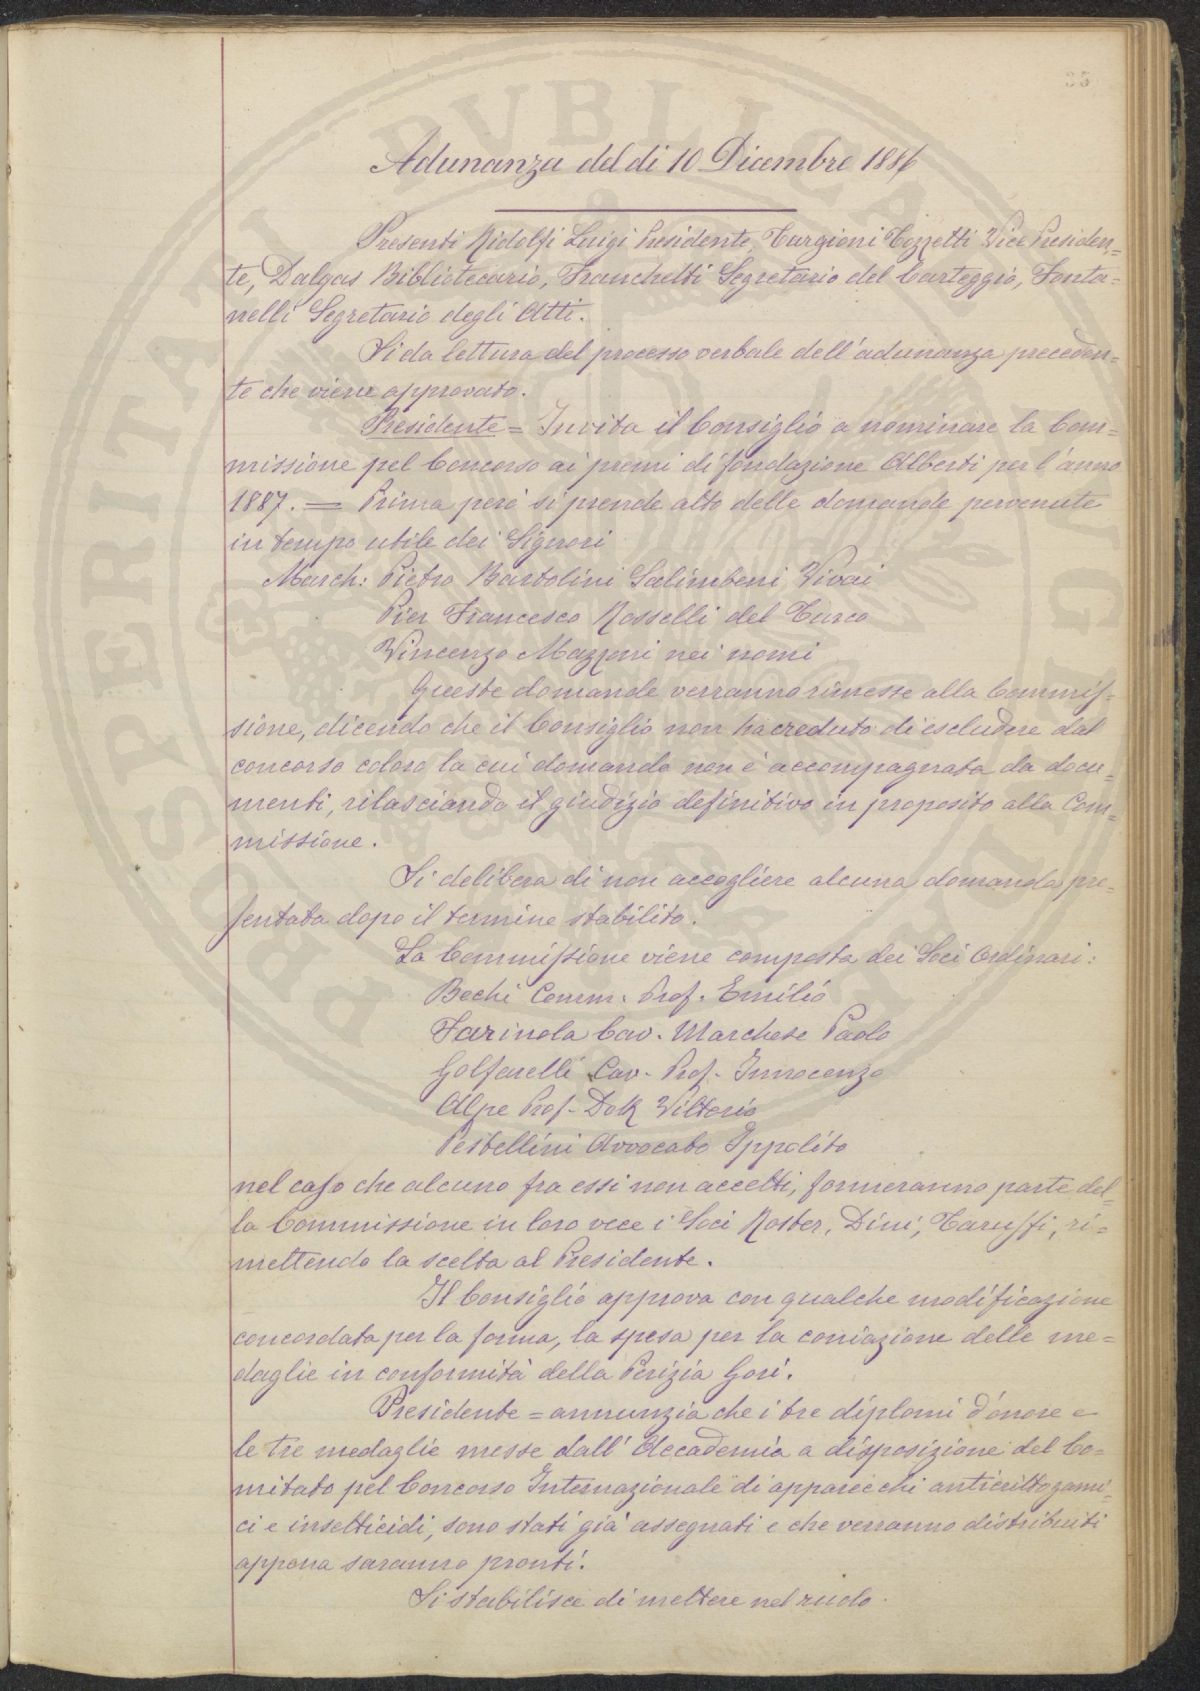 35
Adunanza del dì 10 Dicembre 1886
Presenti Ridolfi Luigi Presidente, Targioni Tozzetti Vice Presiden=
te, Dalgas Bibliotecario, Franchetti Segretario del Carteggio, Fonta=
nelli Segretario degli Atti.
Si da lettura del processo verbale dell'adunanza preceden=
te che viene approvato.
Presidente = Invita il Consiglio a nominare la Com=
missione pel Concorso ai premi di fondazione Alberti per l'anno
1887. = Prima però si prende atto delle domande pervenute
in tempo utile dei Signori
March: Pietro Bartolini Salimbeni Vivai
Pier Francesco Rosselli del Turco
Vincenzo Mazzoni nei nomi
Queste domande verranno rimesse alla Commis=
sione, dicendo che il Consiglio non ha creduto di escludere dal
concorso coloro la cui domanda non è accompagnata da docu=
menti, rilasciando il giudizio definitivo in proposito alla Com=
missione.
Si delibera di non accogliere alcuna domanda pre=
sentata dopo il termine stabilito.
La Commissione viene composta dei Soci Ordinari:
Bechi Comm. Prof. Emilio
Farinola Cav. Marchese Paolo
Golfarelli Cav. Prof. Innocenzo
Alpe Prof. Dott. Vittorio
Pestellini Avvocato Ippolito
nel caso che alcuno fra essi non accetti, formeranno parte del=
la Commissione in loro vece i Soci Roster, Dini, Taruffi, ri=
mettendo la scelta al Presidente.
Il Consiglio approva con qualche modificazione
concordata per la forma, la spesa per la coniazione delle me=
daglie in conformità della Perizia Gori.
Presidente = annunzia che i tre diplomi d'onore e
le tre medaglie messe dall'Accademia a disposizione del Co=
mitato pel Concorso Internazionale di apparecchi anticrittogami=
ci e insetticidi, sono stati già assegnati e che verranno distribuiti
appena saranno pronti.
Si stabilisce di mettere nel ruolo
PROSPERITATI PVBLICAE AVGENDAE